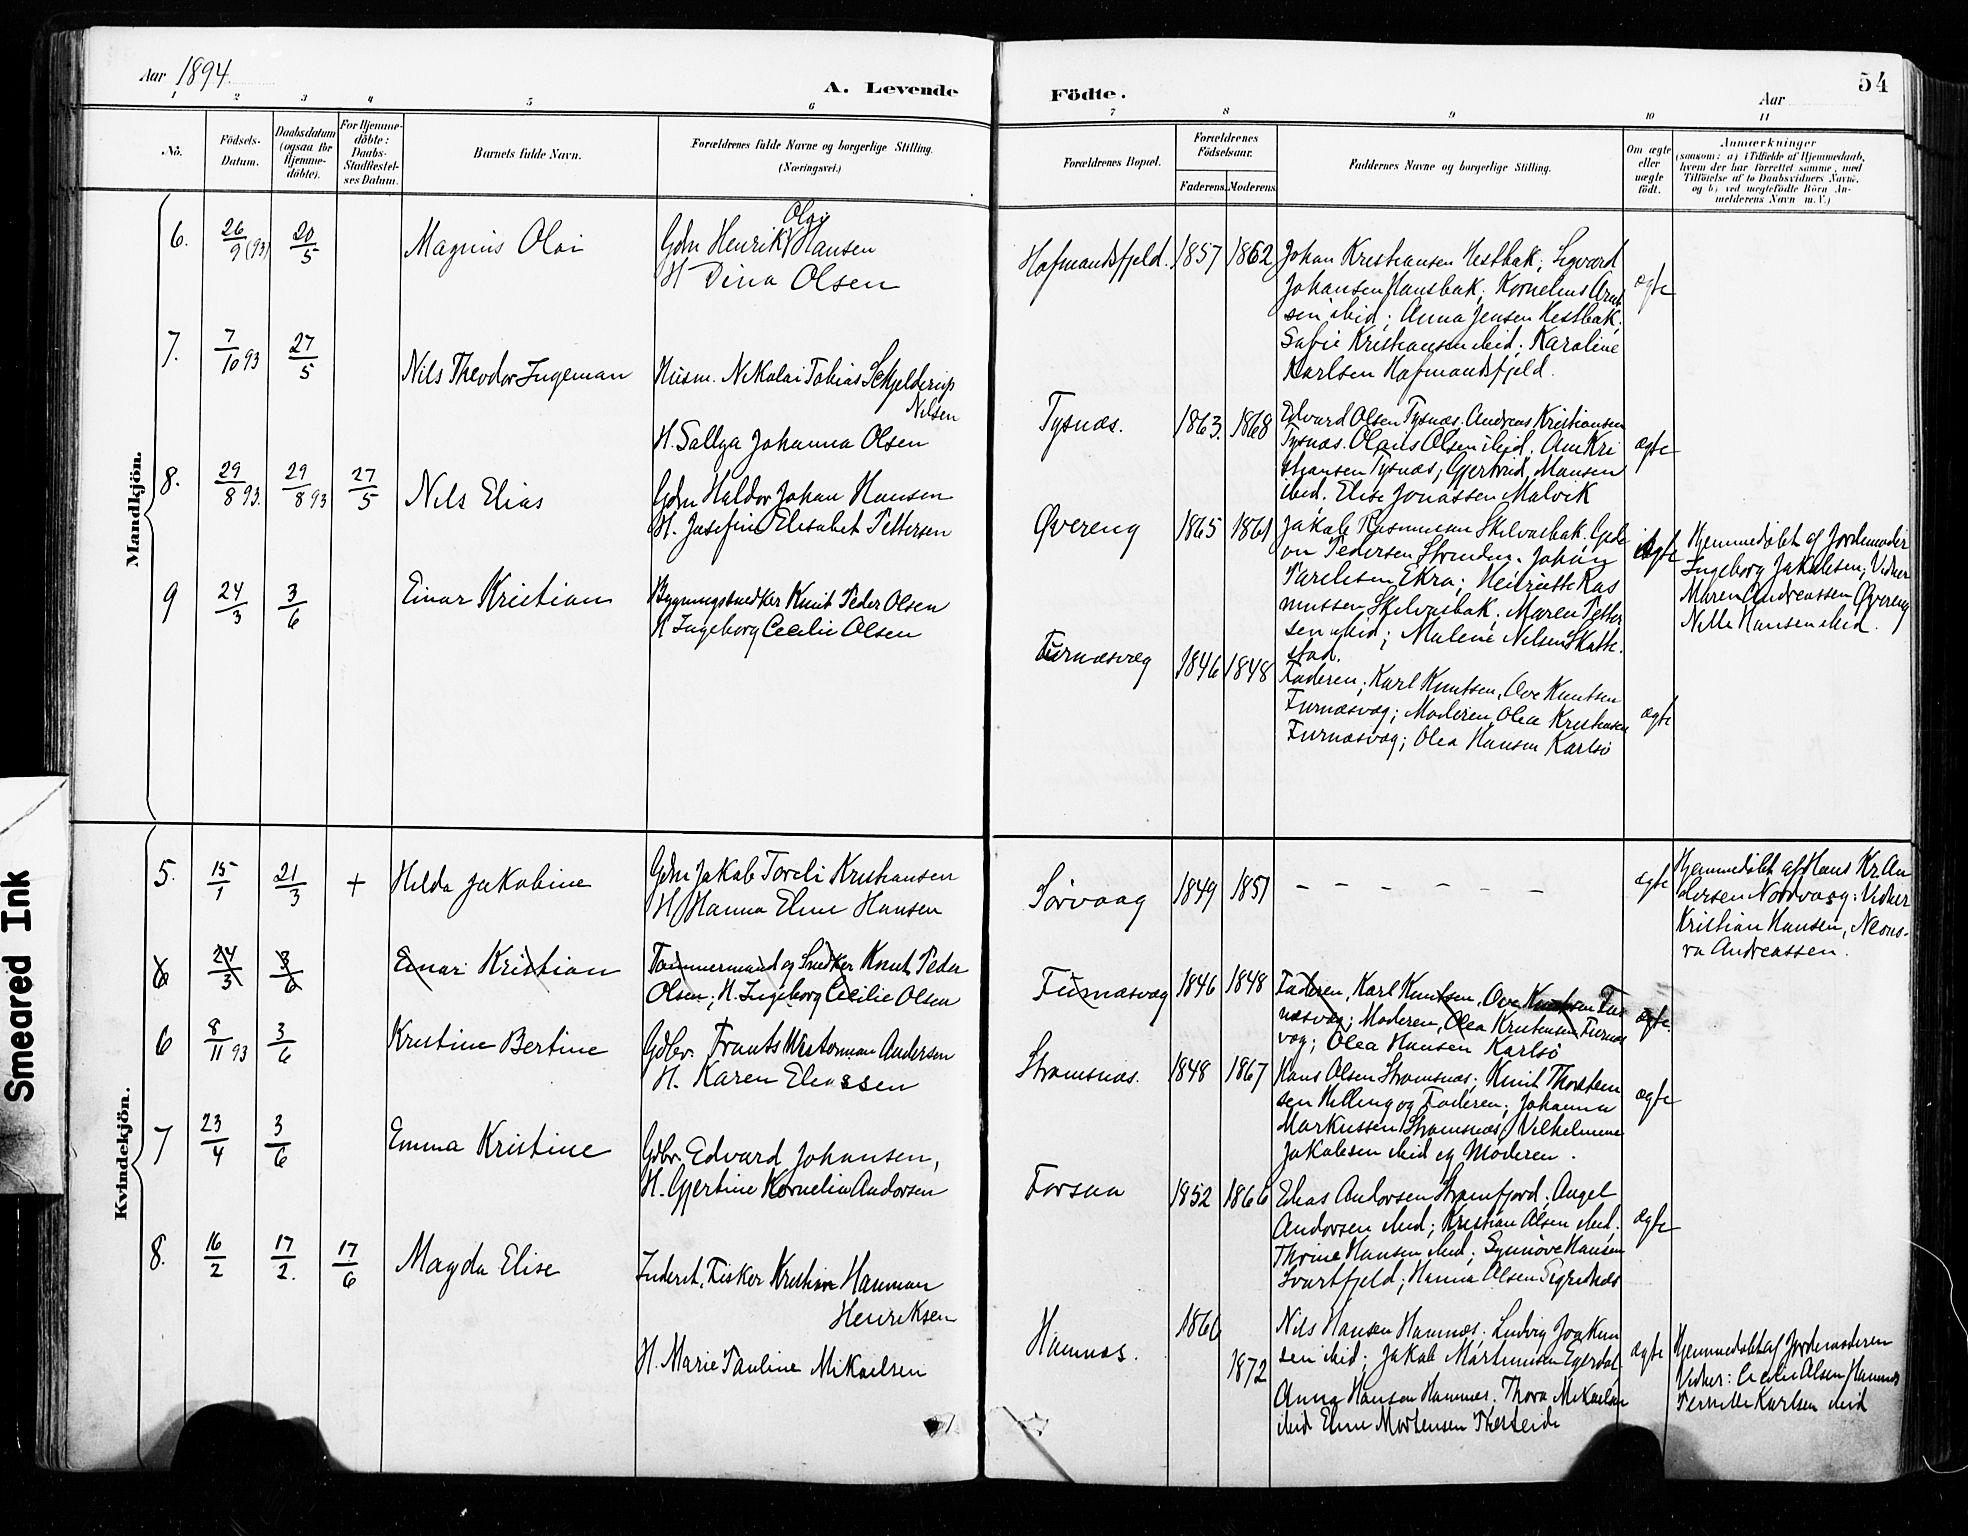 Aar 1894.
A. Levende
Födte.
54
Aar
1 2 3 4 5 6 7 8 9 10 11
No.
Födsels-
Datum.
Daabsdatum
(ogsaa for
Hjemme-
döbte).
For Hjemme-
döbte:
Daabs-
Stadfæstel-
ses Datum.
Barnets fulde Navn.
Forældrenes fulde Navne og borgerlige Stilling.
(Næringsvei.)
Forældrenes Bopæl.
Forældrenes
Födselsaar.
Faderens. Moderens.
Faddernes Navne og borgerlige Stilling.
Om ægte
eller
uægte
födt.
Anmærkninger
(saasom: a) i Tilfælde af Hjemmedaab,
hvem der har forrettet samme, med
Tilföielse af to Daabsvidners Navne,
og b) ved uægtefödte Börn An-
melderens Navn m. V.)
Mandkjön.
6. 26/9 (93) 20/5 Magnus Olai
Olai
Gbr Henrik Hansen
H Dina Olsen
Hofmandsfjeld. 1857 1862
Johan Kristiansen Hestbak; Sigvard
Johansen Hansbak; Kornelius Arnt
sen ibid; Anna Jensen Hestbak;
Sofie Kristiansen ibid; Karoline
Karlsen Hofmandsfjeld.
ægte
7. 7/10 93 27/5 Nils Theodor Ingeman
Husm. Nikolai Tobias Schjelderup
Nilsen
H. Sallya Johanna Olsen
Tysnæs. 1863. 1868
Edvard Olsen Tysnæs. Andreas Kristiansen
Tysnæs. Olaus Olsen ibid. Ane Kri
stiansen Tysnæs; Gjertrud Hansen
ibid. Elise Jonassen Malvik
ægte
8. 29/8 93. 29/8 93 27/5 Nils Elias
Gbr Haldor Johan Hansen
H. Josefine Elisabet Pettersen
Øvereng 1865 1861
Jakob Rasmussen Skilvasbak. Gide
on Pedersen Stranden. Johan
Parelisen Ekra; Henriette Ras
mussen Skilvasbak; Maren Petter
sen ibid; Malene Nilsen Skatte-
stad.
ægte
Hjemmedøbt af Jordemoder
Ingeborg Jakobsen; Vidner
Maren Andreassen Øvereng
Nille Hansen ibid.
9 24/3 3/6 Einar Kristian
Bygningssnedker Knut Peder Olsen
H Ingeborg Cecilie Olsen
Furnæsvæg 1846 1848
Faderen; Karl Knutsen, Ove Knutsen
Furnæsvag; Moderen, Olea Kristensen
Furnæsvag; Olea Hansen Karlsø
ægte
Kvindekjön.
5. 15/1 21/3 + Hilda Jakobine
Gbr Jakob Toreli Kristiansen
H. Hanna Eline Hansen
Sørvaag 1849 1851 – – – – – –
ægte
Hjemmedøbt af Hans Kr. An
dersen Nordvaag: Vidner
Kristian Hansen, Neons-
ra Andreassen.
6 24/3 3/6 Einar Kristian
Tømmermand og Snedker Knut Peder
Olsen; H. Ingeborg Cecilie Olsen
Furnæsvag 1846 1848
Faderen, Karl Knutsen, Ove Knutsen Fur
næsvag; Moderen, Olea Kristensen Furnæs
vag; Olea Hansen Karlsø
ægte.
6 8/11 93 3/6 Kristine Bertine
Gdbr. Frants Westerman Andersen
H. Karen Eliassen
Strømsnæs. 1848 1867
Hans Olsen Strømsnæs; Knut Thorstein
sen Helling og Faderen; Johanna
Markussen Strømsnæs; Vilhelmine
Jakobsen ibid og Moderen.
ægte
7 23/4 3/6 Emma Kristine
Gdbr. Edvard Johansen,
H. Gjertine Kornelia Andorsen
Forsaa 1852 1866
Elias Andorsen Strømfjord; Angel
Andorsen ibid; Kristian Olsen ibid.
Thrine Hansen ibid; Synnøve Hansen
Svartfjeld; Hanna Olsen Sigridnæs
ægte
8. 16/2 17/2. 17/6 Magda Elise
Inderst, Fisker Kristian Hauman
Henriksen
H. Marie Pauline Mikaelsen
Hamnæs. 1866 1872
Nils Hansen Hamnæs; Ludvig Joakim
sen ibid; Jakob Martinusen Egerdal
Anna Hansen Hamnæs. Thora Mikaelsen
ibid Eline Mortensen
ægte
Hjemmedøbt af Jordemoderen
Vidner: Cecilie Olsen Hamnæs
Pernille Karlsen ibid
Smeared Ink